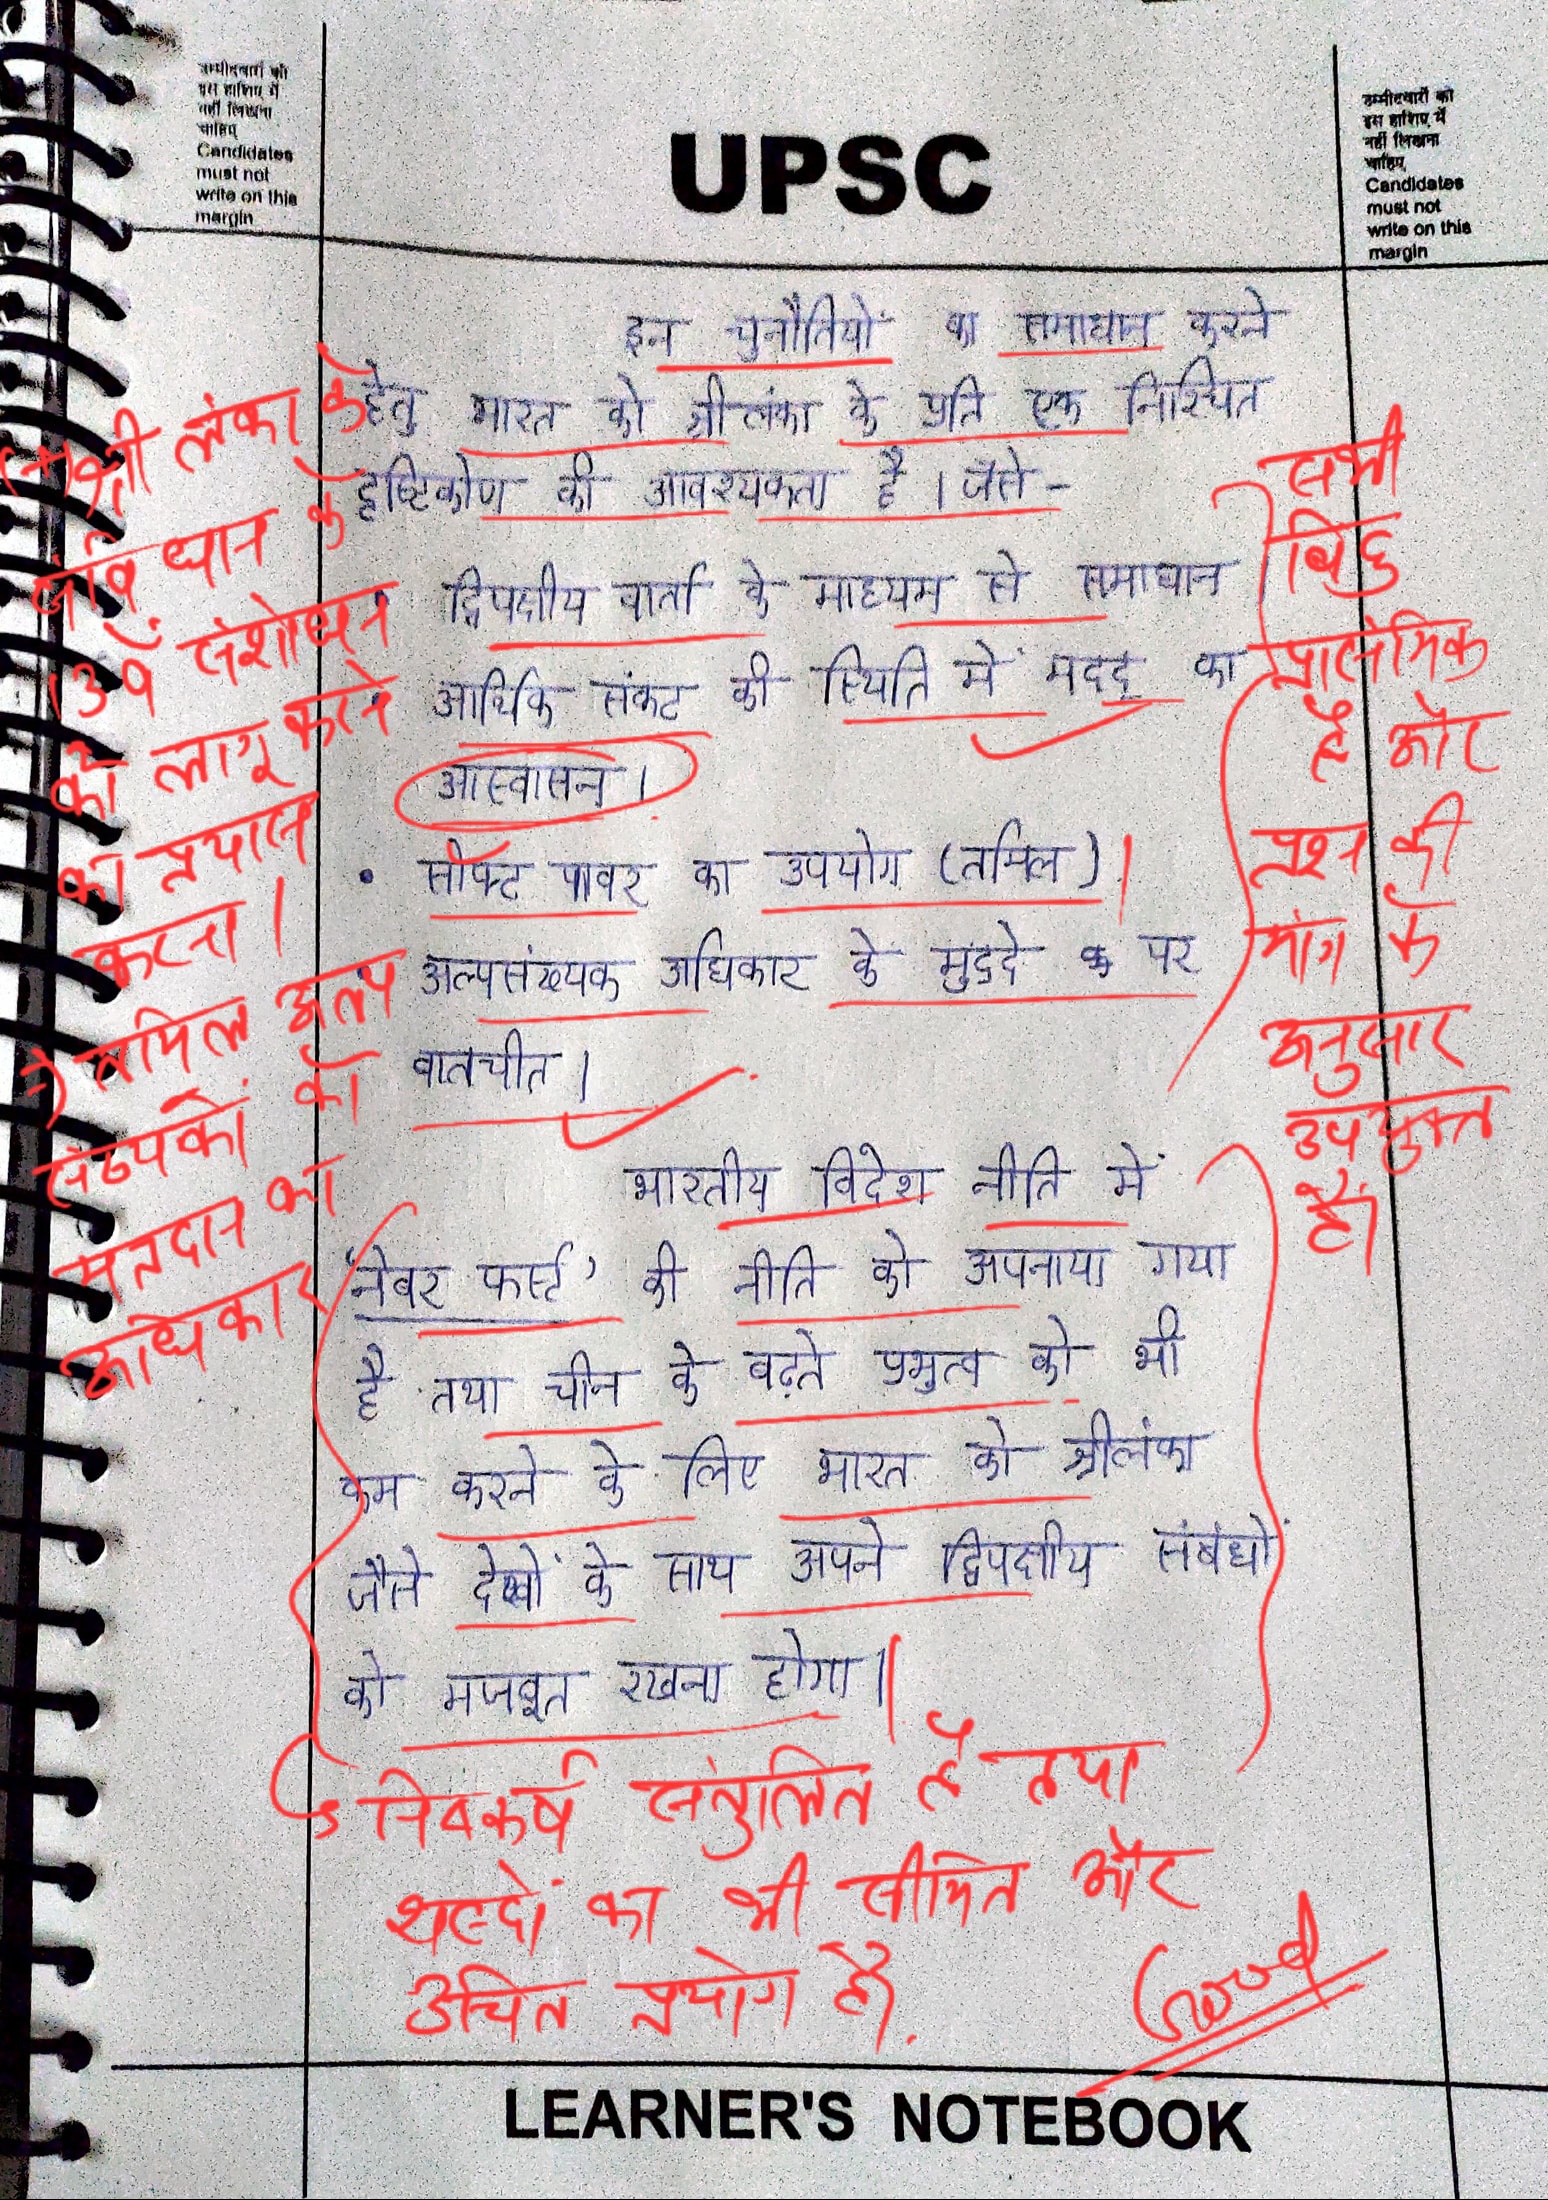 उम्मीदवारों को
इस हाशिए में
नहीं लिखना
चाहिए
Candidates
must not
write on this
margin
UPSC
उम्मीदवारों को
इस हाशिए में
नहीं लिखना
चाहिए
Candidates
must not
write on this
margin
इन चुनौतियों का समाधान करने
हेतु भारत को श्रीलंका के प्रति एक निश्चित
दृष्टिकोण की आवश्यकता है। जैसे-
द्विपक्षीय वार्ता के माध्यम से समाधान
• आर्थिक संकट की स्थिति में मदद का
आस्वासन।
• सॉफ्ट पावर का उपयोग (तमिल)।
• अल्पसंख्यक अधिकार के मुद्दे पर
वातचीत।
भारतीय विदेश नीति में
'नेबर फर्स्ट' की नीति को अपनाया गया
है तथा चीन के बढ़ते प्रभुत्व को भी
कम करने के लिए भारत को श्रीलंका
जैसे देशों के साथ अपने द्विपक्षीय संबंधों
को मजबूत रखना होगा।
श्री लंका के
संवि धान के
13वे संशोधन
को लागू करने
का प्रयास
करना।
→ तमिल अल्प
संख्यकों को
मतदान का
अधिकार
सभी
बिंदु
प्रासंगिक
है और
प्रश्न की
मांग के
अनुसार
उपयुक्त
हैं।
निष्कर्ष संतुलित है तथा
शब्दों का भी सीमित और
उचित प्रयोग है।
Good
LEARNER'S NOTEBOOK